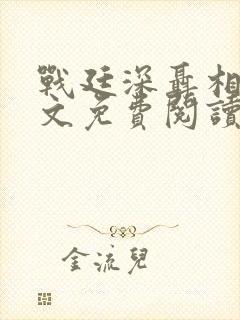 戰廷深聶相
文免費閱讀
金流兒